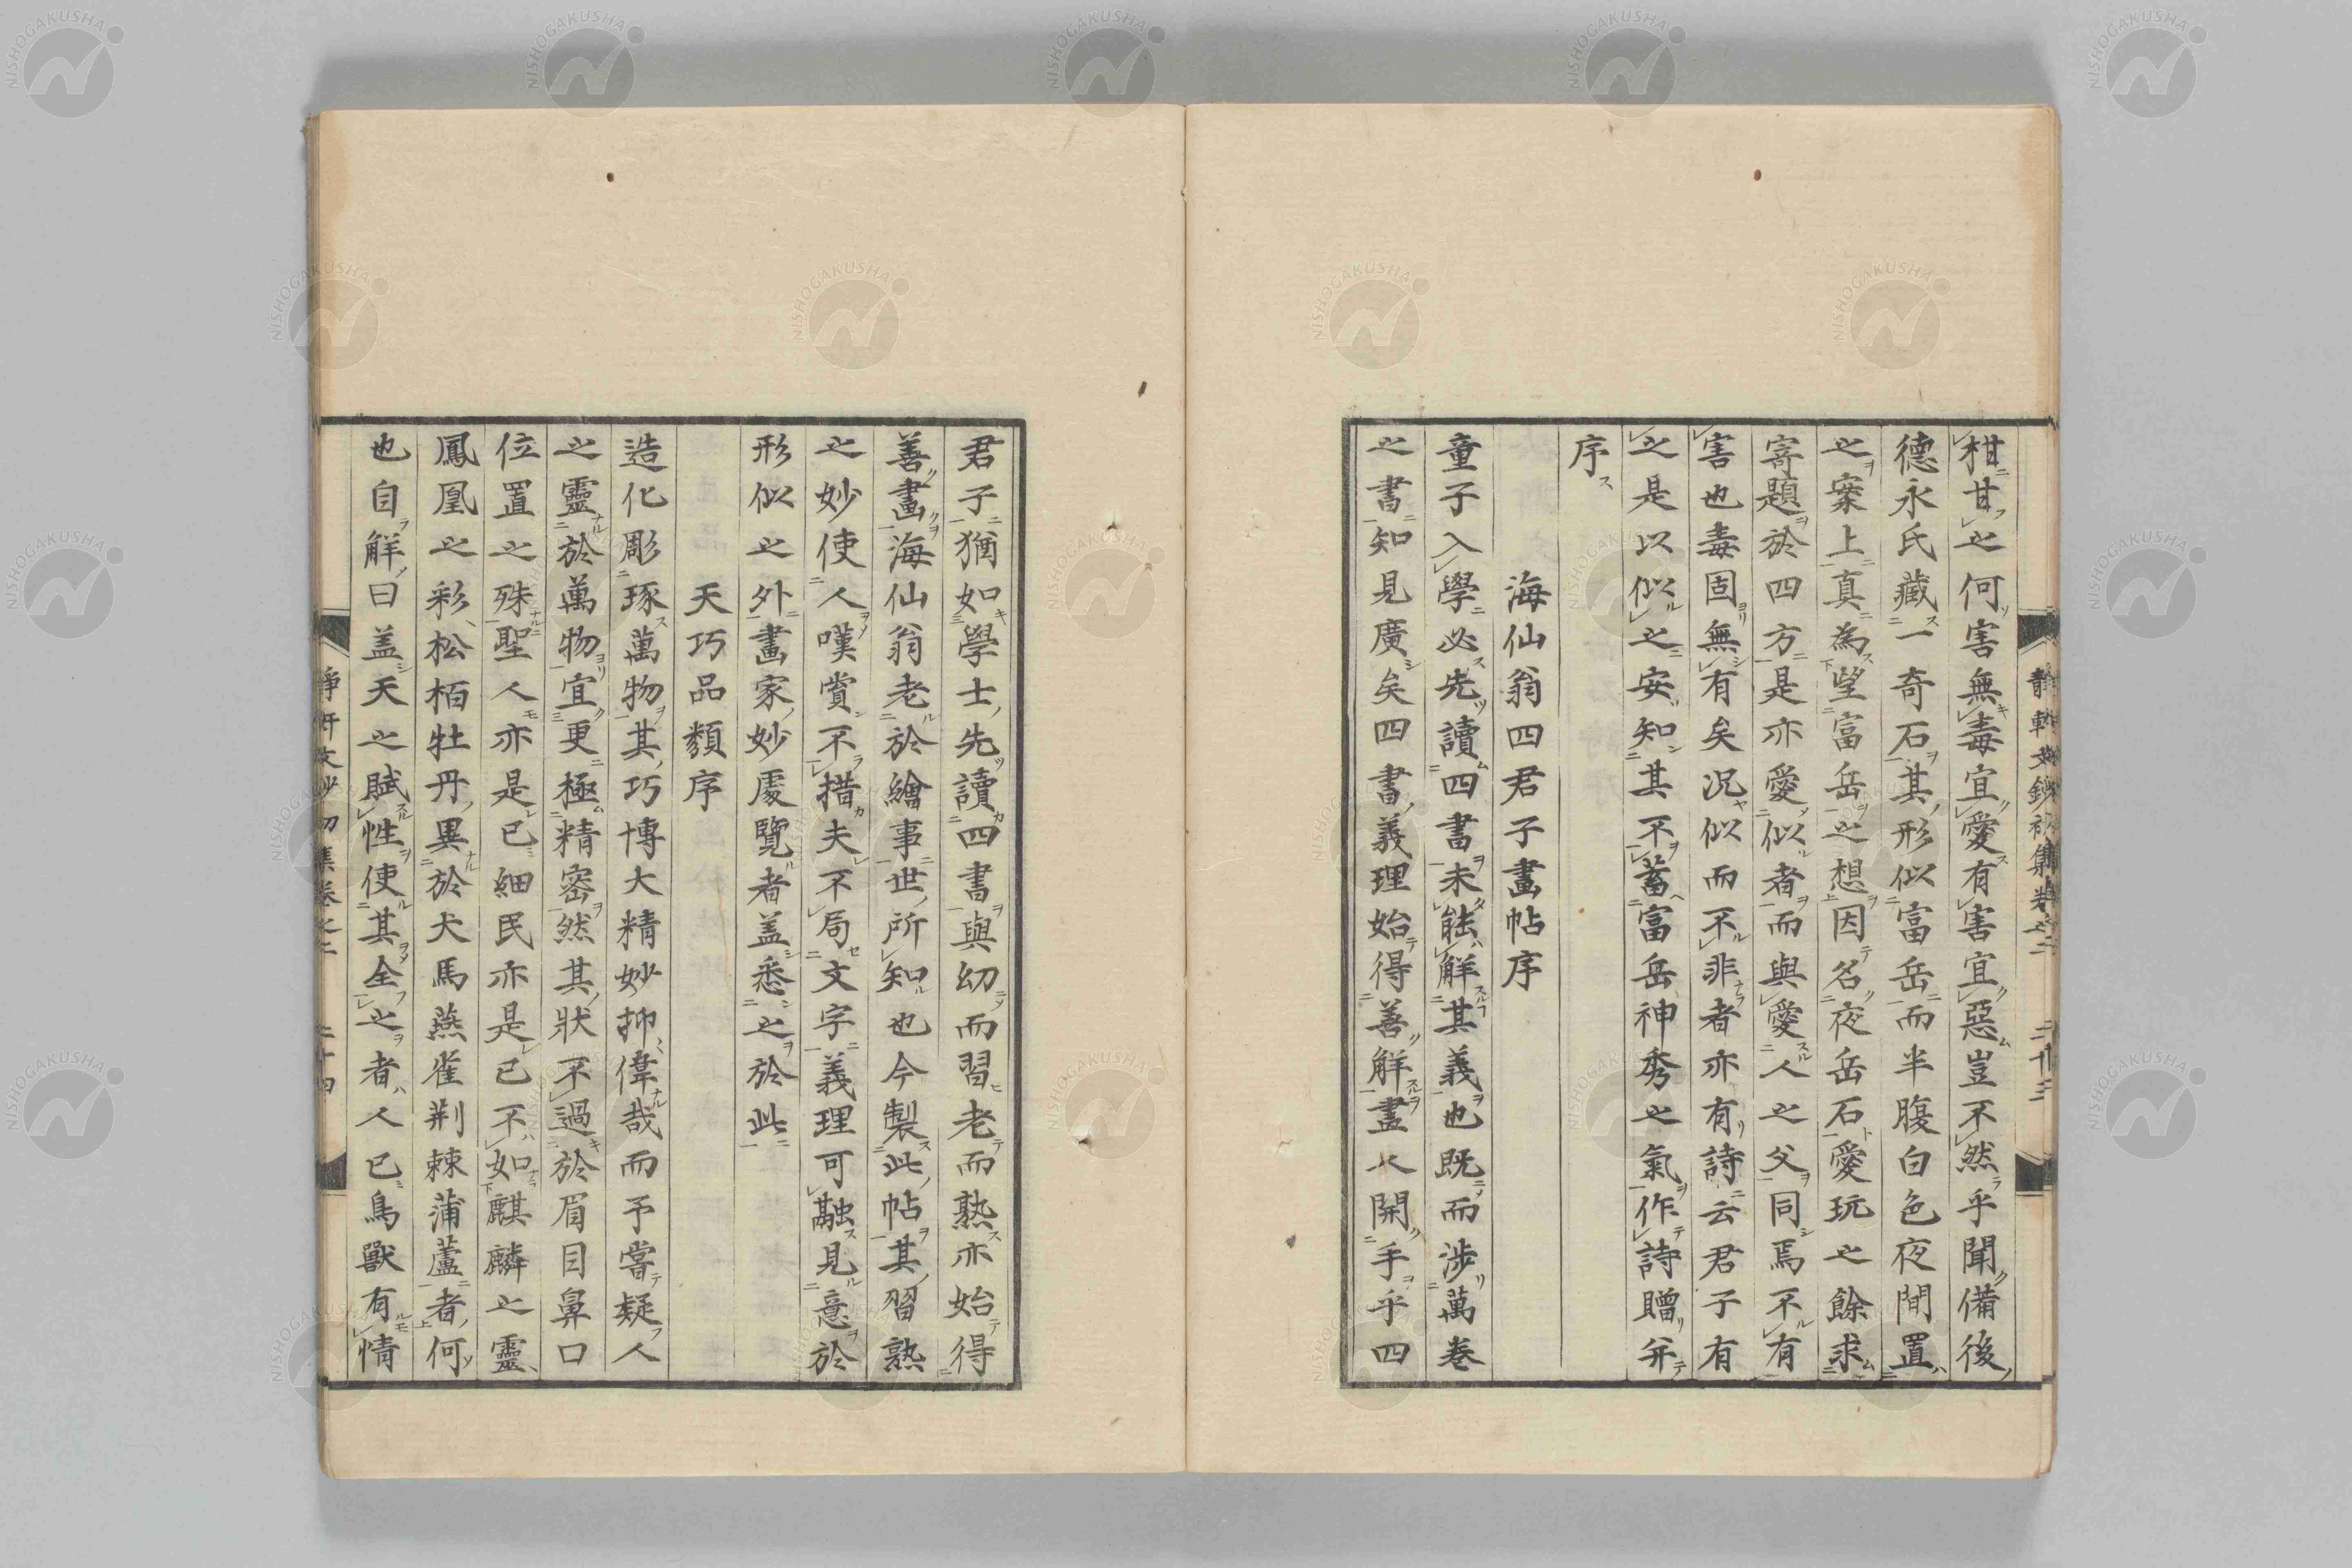 柑甘之何害無毒宜愛有害宜惡豈不然乎聞備後
德永氏藏一奇石其形似富岳而半腹白色夜間置
之案上真為望富岳之想因名夜岳石愛玩之餘求
寄題於四方是亦愛似者而與愛人之父同焉不有
害也毒固無有矣况似而不非者亦有詩云君子有
之是以似之安知其不蓄富岳神秀之氣作詩贈并
序
海仙翁四君子畫帖序
童子入學必先讀四書未能解其義也既而涉萬卷
之書知見廣矣四書義理始得善解畫人開手乎四
君子猶如學士先讀四書與幼而習老而熟亦始得
善畫海仙翁老於繪事世所知也今製此帖其習熟
之妙使人嘆賞不措夫不局文字義理可融見意於
形似之外畫家妙處覽者盖悉之於此
天巧品類序
造化彫琢萬物其巧博大精妙抑偉哉而予嘗疑人
之靈於萬物宜更極精密然其狀不過於眉目鼻口
位置之殊聖人亦是已細民亦是已不如麒麟之靈
鳳凰之彩松栢牡丹異於犬馬燕雀荆棘蒲蘆者何
也自解曰盖天之賦性使其全之者人已鳥獸有情